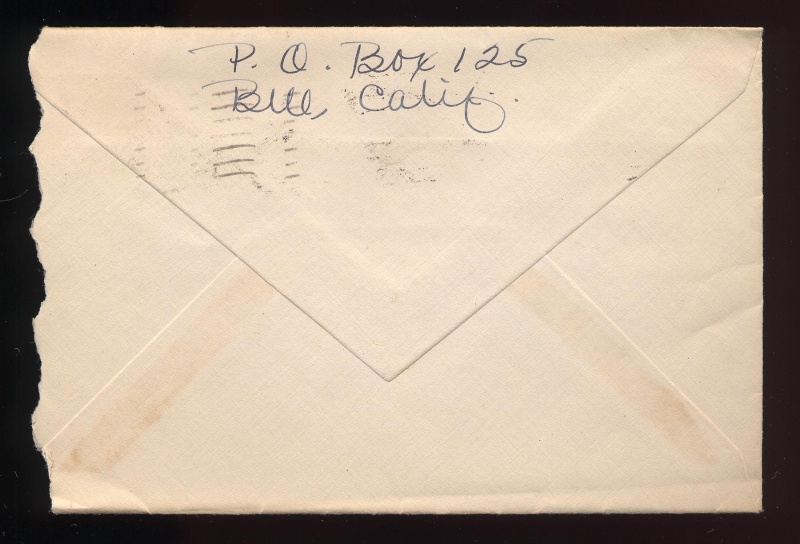 P. O. Box 125
Bell, Calif.